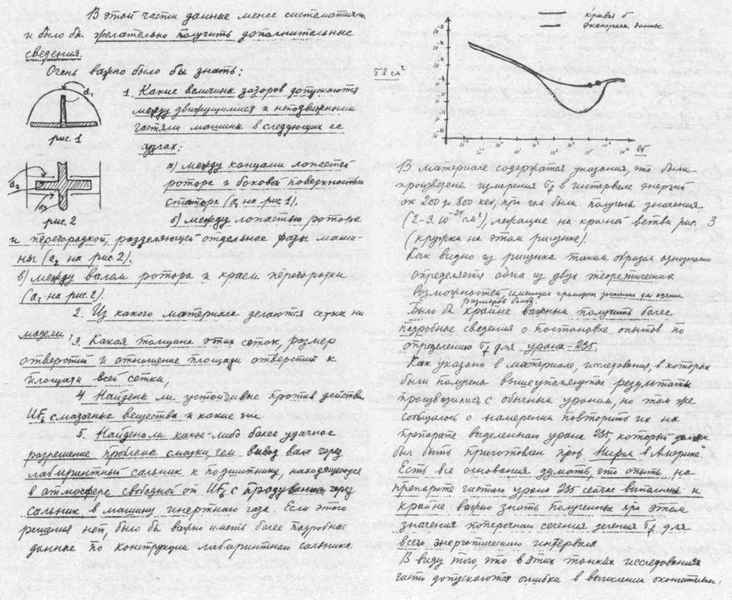 В этой части данные менее систематичны
и было бы желательно получить дополнительные
сведения.
Очень важно было бы знать:
рис. 1
1. Какие величины зазоров допускаются
между движущимися и неподвижными
частями машины в следующих ее
узлах:
а) между концами лопастей
ротора и боковой поверхностью
статора (a₁ на рис 1).
рис. 2
б) между лопастью ротора
и перегородкой, разделяющей отдельные фазы маши-
ны (a₂ на рис 2).
в) между валом ротора и краем перегородки
(a₃ на рис. 2).
2. Из какого материала делаются сетки на
модели
3. Какая толщина этих сеток, размер
отверстий и отношение площади отверстий к
площади всей сетки,
4. Найдены ли устойчивые против действия
UF₆ смазочные вещества и какие
5. Найдено ли какое-либо более удачное
разрешение проблемы смазки, чем вывод вала через
лабиринтный сальник к подшипнику, находящемуся
в атмосфере свободной от UF₆ с продуванием через
сальник в машину инертного газа. Если этого
решения нет, было бы важно иметь более подробные
данные по конструкции лабиринтного сальника
кривая
В материале содержатся указания, что были
произведены измерения σf в интервале энергий
от 200 до 800 kev, при чем были получены значения
(2-3.10⁻²⁴ см²), лежащие на кривой рис. 3
(кружки на этом рисунке).
Как видно из рисунка таким образом однозначно
определяется одна из двух теоретических
возможностей,
Было бы крайне важным получить более
подробные сведения о постановке опытов по
определению σf для урана-235.
Как указано в материале, исследования, в которых
были получены вышеупомянутые результаты
производились с обычным ураном, но там же
сообщалось о намерении повторить их на
препарате выделенного урана 235, который должен
был быть приготовлен проф.
Есть все основания думать, что опыты на
препарате чистого урана 235 сейчас выполнены и
крайне важно знать полученные при этом
значения поперечного сечения деления σf для
всего энергетического интервала
В виду того, что в этих тонких исследованиях
часто допускаются ошибки в вычислении окончательных